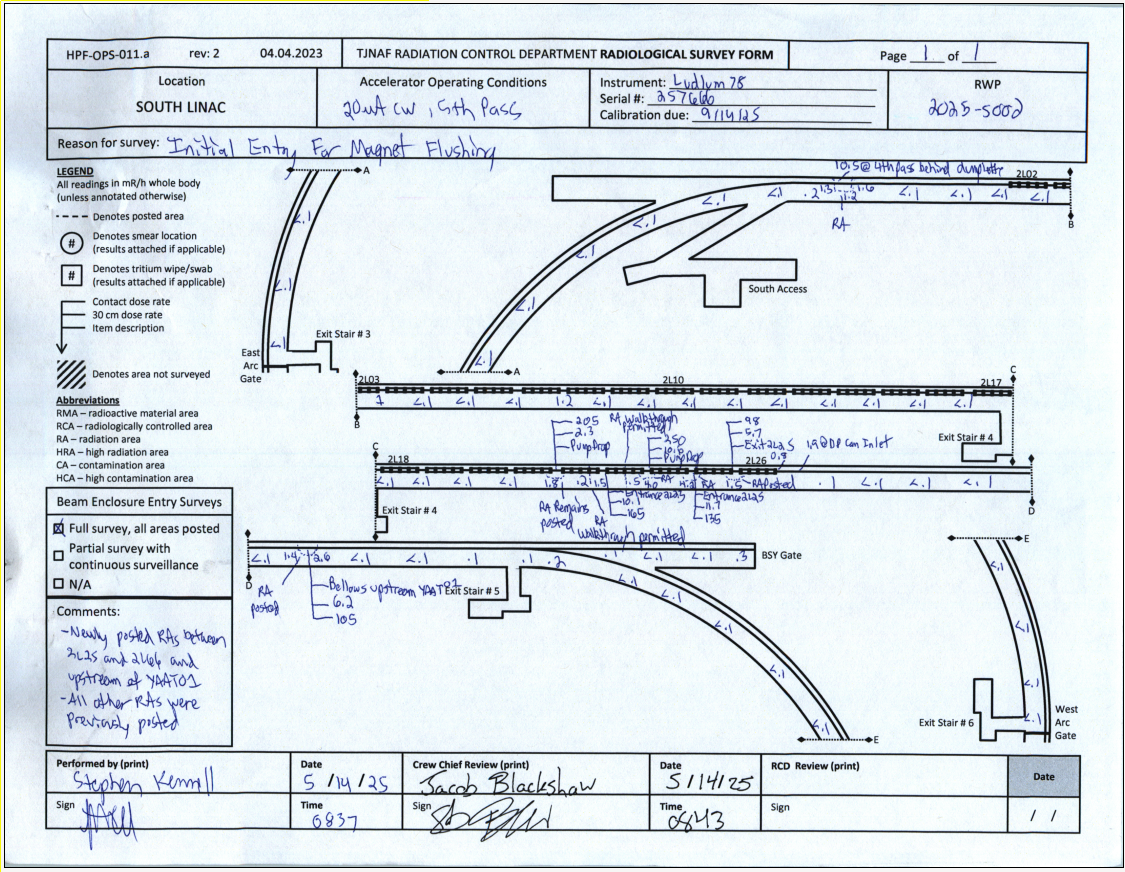 HPF-OPS-011.a rev: 2 04.04.2023 TJNAF RADIATION CONTROL DEPARTMENT RADIOLOGICAL SURVEY FORM Page 1 of 1
Location
SOUTH LINAC
Accelerator Operating Conditions
20uA CW, 5th Pass
Instrument: Ludlum 78
Serial #: 257660
Calibration due: 9/14/25
RWP
2025-S002
Reason for survey: Initial Entry For Magnet Flushing
LEGEND
All readings in mR/h whole body
(unless annotated otherwise)
Denotes posted area
# Denotes smear location
(results attached if applicable)
# Denotes tritium wipe/swab
(results attached if applicable)
Contact dose rate
30 cm dose rate
Item description
Denotes area not surveyed
Abbreviations
RMA – radioactive material area
RCA – radiologically controlled area
RA – radiation area
HRA – high radiation area
CA – contamination area
HCA – high contamination area
Beam Enclosure Entry Surveys
Full survey, all areas posted
Partial survey with
continuous surveillance
N/A
Comments:
-Newly posted RAs between
2L25 and 2L26 and
upstream of YAAT01
-All other RAs were
Previously posted
A
<.1
<.1
<.1
Exit Stair # 3
East
Arc
Gate
10.5 @ 4th pass behind dumplette
2L02
<.1 <.1 <.1 .2 1.3 1.2 1.6 <.1 <.1 <.1 <.1
RA
B
<.1
<.1
<.1
A
South Access
2L03 2L10 2L17 C
<.1 <.1 <.1 1.2 <.1 <.1 <.1 <.1 <.1 <.1 <.1
B
Exit Stair # 4
205
2.3
Pump Drop
RA walkthrough
permitted
250
10.6
Pump Drop
98
5.7
Exit 2L25
1.9 @ DP Can Inlet
0.8
C
2L18 2L26
<.1 <.1 <.1 <.1 <.1 1.8 .2 1.5 1.5 RA RA 1.5 RA Posted .1 <.1 <.1 <.1
D
Exit Stair # 4
RA Remains
posted
RA
walkthrough permitted
Entrance 2L23
10.1
165
Entrance 2L25
11.7
135
<.1 1.4 2.6 <.1 <.1 .1 .1 .2 .1 <.1 <.1 .3 BSY Gate
D
RA
posted
Bellows upstream YAAT01
6.2
105
Exit Stair # 5
<.1
<.1
<.1
<.1
<.1
E
E
<.1
<.1
<.1
<.1
Exit Stair # 6
West
Arc
Gate
Performed by (print)
Stephen
Date
5/14/25
Crew Chief Review (print)
Jacob Blackshaw
Date
5/14/25
RCD Review (print)
Date
Sign
Time
0837
Sign
Time
0843
Sign
/ /